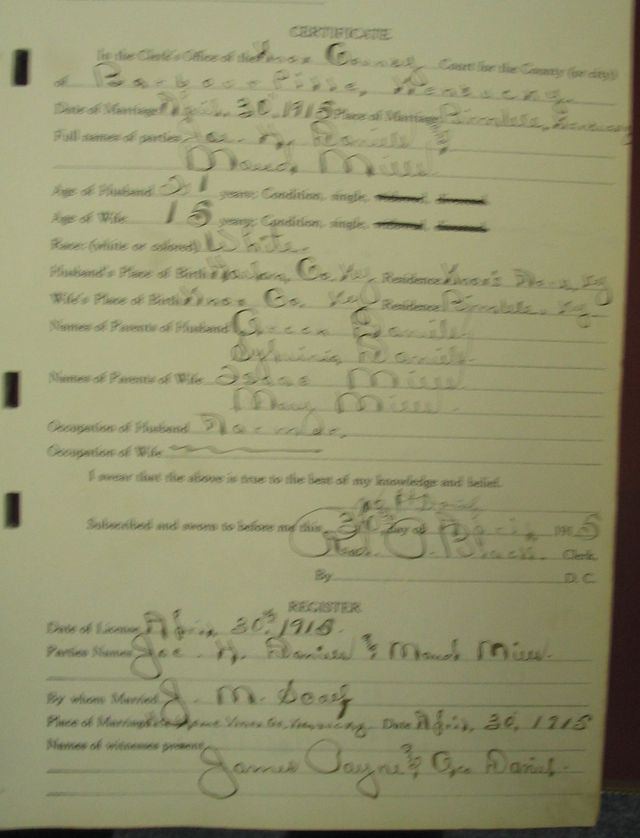 CERTIFICATE
In the Clerk's Office of the Knox County Court for the County (or city)
of Barbourville, Kentucky.
Date of Marriage April, 30, 1915 Place of Marriage Kentucky
Full names of parties Joe. H. Daniels &
Maud Mills.
Age of Husband 21 years; Condition, single, widowed, divorced
Age of Wife 15 years; Condition, single, widowed, divorced
Race: (white or colored) White.
Husband's Place of Birth Harlan, Co. Ky. Residence Ky
Wife's Place of Birth Knox Co. Ky Residence Ky.
Names of Parents of Husband Green Daniels
Daniels.
Names of Parents of Wife Isaac Mills
Mary Mills.
Occupation of Husband Farmer.
Occupation of Wife
I swear that the above is true to the best of my knowledge and belief.
Subscribed and sworn to before me this 30th day of April, 1915
Read. O. Black Clerk.
By D. C.
REGISTER
Date of License April, 30th 1915.
Parties Names Joe. H. Daniels & Maud Mills.
By whom Married J. M.
Place of Marriage Knox Co. Kentucky Date April, 30, 1915
Names of witnesses present
James Payne & Daniel.